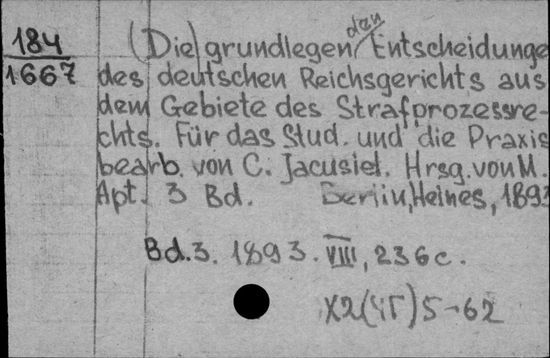 184
1667
(Die) grundlegenden Entscheidunge
des deutschen Reichsgerichts aus
dem Gebiete des Strafprozessre-
chts. Für das Stud. und die Praxis
bearb. von C. Jacusiel. Hrsg. von M.
Apt. 3 Bd. Berlin, Heines, 1893
Bd. 3. 1893. VIII, 236 c.
X2(4Г)5-62